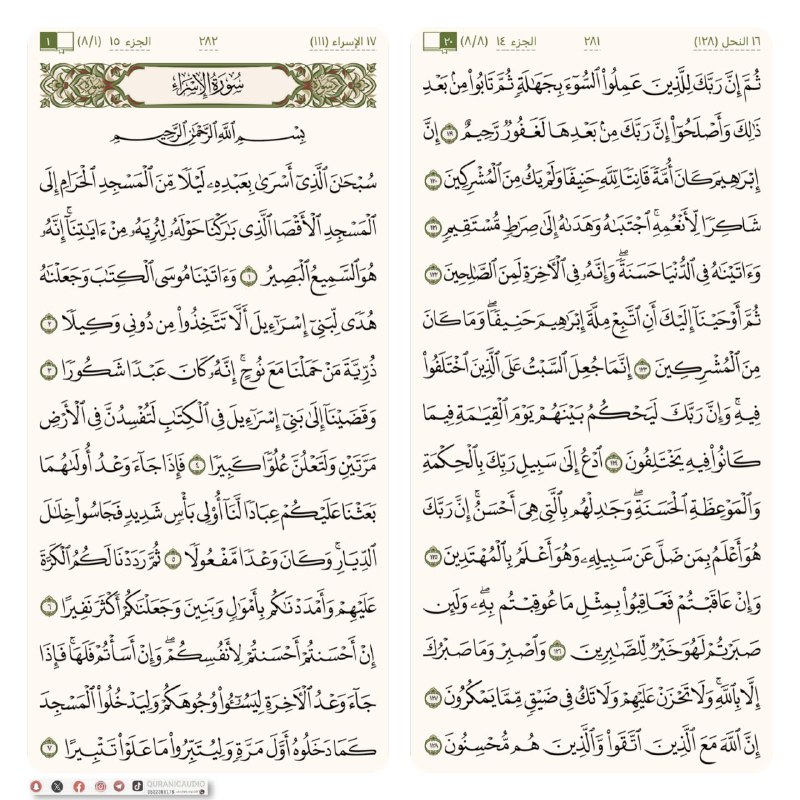 ١٦ النحل (١٢٨) ٢٨١ الجزء ١٤ (٨/٨) ٢٠
ثُمَّ إِنَّ رَبَّكَ لِلَّذِينَ عَمِلُوا۟ ٱلسُّوٓءَ بِجَهَـٰلَةٍ ثُمَّ تَابُوا۟ مِنۢ بَعْدِ
ذَٰلِكَ وَأَصْلَحُوٓا۟ إِنَّ رَبَّكَ مِنۢ بَعْدِهَا لَغَفُورٌ رَّحِيمٌ ١١٩ إِنَّ
إِبْرَٰهِيمَ كَانَ أُمَّةً قَانِتًا لِّلَّهِ حَنِيفًا وَلَمْ يَكُ مِنَ ٱلْمُشْرِكِينَ ١٢٠
شَاكِرًا لِّأَنْعُمِهِ ۚ ٱجْتَبَىٰهُ وَهَدَىٰهُ إِلَىٰ صِرَٰطٍ مُّسْتَقِيمٍ ١٢١
وَءَاتَيْنَـٰهُ فِى ٱلدُّنْيَا حَسَنَةً ۖ وَإِنَّهُۥ فِى ٱلْـَٔاخِرَةِ لَمِنَ ٱلصَّـٰلِحِينَ ١٢٢
ثُمَّ أَوْحَيْنَآ إِلَيْكَ أَنِ ٱتَّبِعْ مِلَّةَ إِبْرَٰهِيمَ حَنِيفًا ۖ وَمَا كَانَ
مِنَ ٱلْمُشْرِكِينَ ١٢٣ إِنَّمَا جُعِلَ ٱلسَّبْتُ عَلَى ٱلَّذِينَ ٱخْتَلَفُوا۟
فِيهِ ۚ وَإِنَّ رَبَّكَ لَيَحْكُمُ بَيْنَهُمْ يَوْمَ ٱلْقِيَـٰمَةِ فِيمَا
كَانُوا۟ فِيهِ يَخْتَلِفُونَ ١٢٤ ٱدْعُ إِلَىٰ سَبِيلِ رَبِّكَ بِٱلْحِكْمَةِ
وَٱلْمَوْعِظَةِ ٱلْحَسَنَةِ ۖ وَجَـٰدِلْهُم بِٱلَّتِى هِىَ أَحْسَنُ ۚ إِنَّ رَبَّكَ
هُوَ أَعْلَمُ بِمَن ضَلَّ عَن سَبِيلِهِۦ ۖ وَهُوَ أَعْلَمُ بِٱلْمُهْتَدِينَ ١٢٥
وَإِنْ عَاقَبْتُمْ فَعَاقِبُوا۟ بِمِثْلِ مَا عُوقِبْتُم بِهِۦ ۖ وَلَئِن
صَبَرْتُمْ لَهُوَ خَيْرٌ لِّلصَّـٰبِرِينَ ١٢٦ وَٱصْبِرْ وَمَا صَبْرُكَ
إِلَّا بِٱللَّهِ ۚ وَلَا تَحْزَنْ عَلَيْهِمْ وَلَا تَكُ فِى ضَيْقٍ مِّمَّا يَمْكُرُونَ ١٢٧
إِنَّ ٱللَّهَ مَعَ ٱلَّذِينَ ٱتَّقَوا۟ وَّٱلَّذِينَ هُم مُّحْسِنُونَ ١٢٨
١٧ الإسراء (١١١) ٢٨٢ الجزء ١٥ (٨/١) ١
سُورَةُ الإِسْرَاءِ
بِسْمِ ٱللَّهِ ٱلرَّحْمَـٰنِ ٱلرَّحِيمِ
سُبْحَـٰنَ ٱلَّذِىٓ أَسْرَىٰ بِعَبْدِهِۦ لَيْلًا مِّنَ ٱلْمَسْجِدِ ٱلْحَرَامِ إِلَى
ٱلْمَسْجِدِ ٱلْأَقْصَا ٱلَّذِى بَـٰرَكْنَا حَوْلَهُۥ لِنُرِيَهُۥ مِنْ ءَايَـٰتِنَآ ۚ إِنَّهُۥ
هُوَ ٱلسَّمِيعُ ٱلْبَصِيرُ ١ وَءَاتَيْنَا مُوسَى ٱلْكِتَـٰبَ وَجَعَلْنَـٰهُ
هُدًى لِّبَنِىٓ إِسْرَٰٓءِيلَ أَلَّا تَتَّخِذُوا۟ مِن دُونِى وَكِيلًا ٢
ذُرِّيَّةَ مَنْ حَمَلْنَا مَعَ نُوحٍ ۚ إِنَّهُۥ كَانَ عَبْدًا شَكُورًا ٣
وَقَضَيْنَآ إِلَىٰ بَنِىٓ إِسْرَٰٓءِيلَ فِى ٱلْكِتَـٰبِ لَتُفْسِدُنَّ فِى ٱلْأَرْضِ
مَرَّتَيْنِ وَلَتَعْلُنَّ عُلُوًّا كَبِيرًا ٤ فَإِذَا جَآءَ وَعْدُ أُولَىٰهُمَا
بَعَثْنَا عَلَيْكُمْ عِبَادًا لَّنَآ أُو۟لِى بَأْسٍ شَدِيدٍ فَجَاسُوا۟ خِلَـٰلَ
ٱلدِّيَارِ ۚ وَكَانَ وَعْدًا مَّفْعُولًا ٥ ثُمَّ رَدَدْنَا لَكُمُ ٱلْكَرَّةَ
عَلَيْهِمْ وَأَمْدَدْنَـٰكُم بِأَمْوَٰلٍ وَبَنِينَ وَجَعَلْنَـٰكُمْ أَكْثَرَ نَفِيرًا ٦
إِنْ أَحْسَنتُمْ أَحْسَنتُمْ لِأَنفُسِكُمْ ۖ وَإِنْ أَسَأْتُمْ فَلَهَا ۚ فَإِذَا
جَآءَ وَعْدُ ٱلْـَٔاخِرَةِ لِيَسُـۥٓـُٔوا۟ وُجُوهَكُمْ وَلِيَدْخُلُوا۟ ٱلْمَسْجِدَ
كَمَا دَخَلُوهُ أَوَّلَ مَرَّةٍ وَلِيُتَبِّرُوا۟ مَا عَلَوْا۟ تَتْبِيرًا ٧
QURANICAUDIO